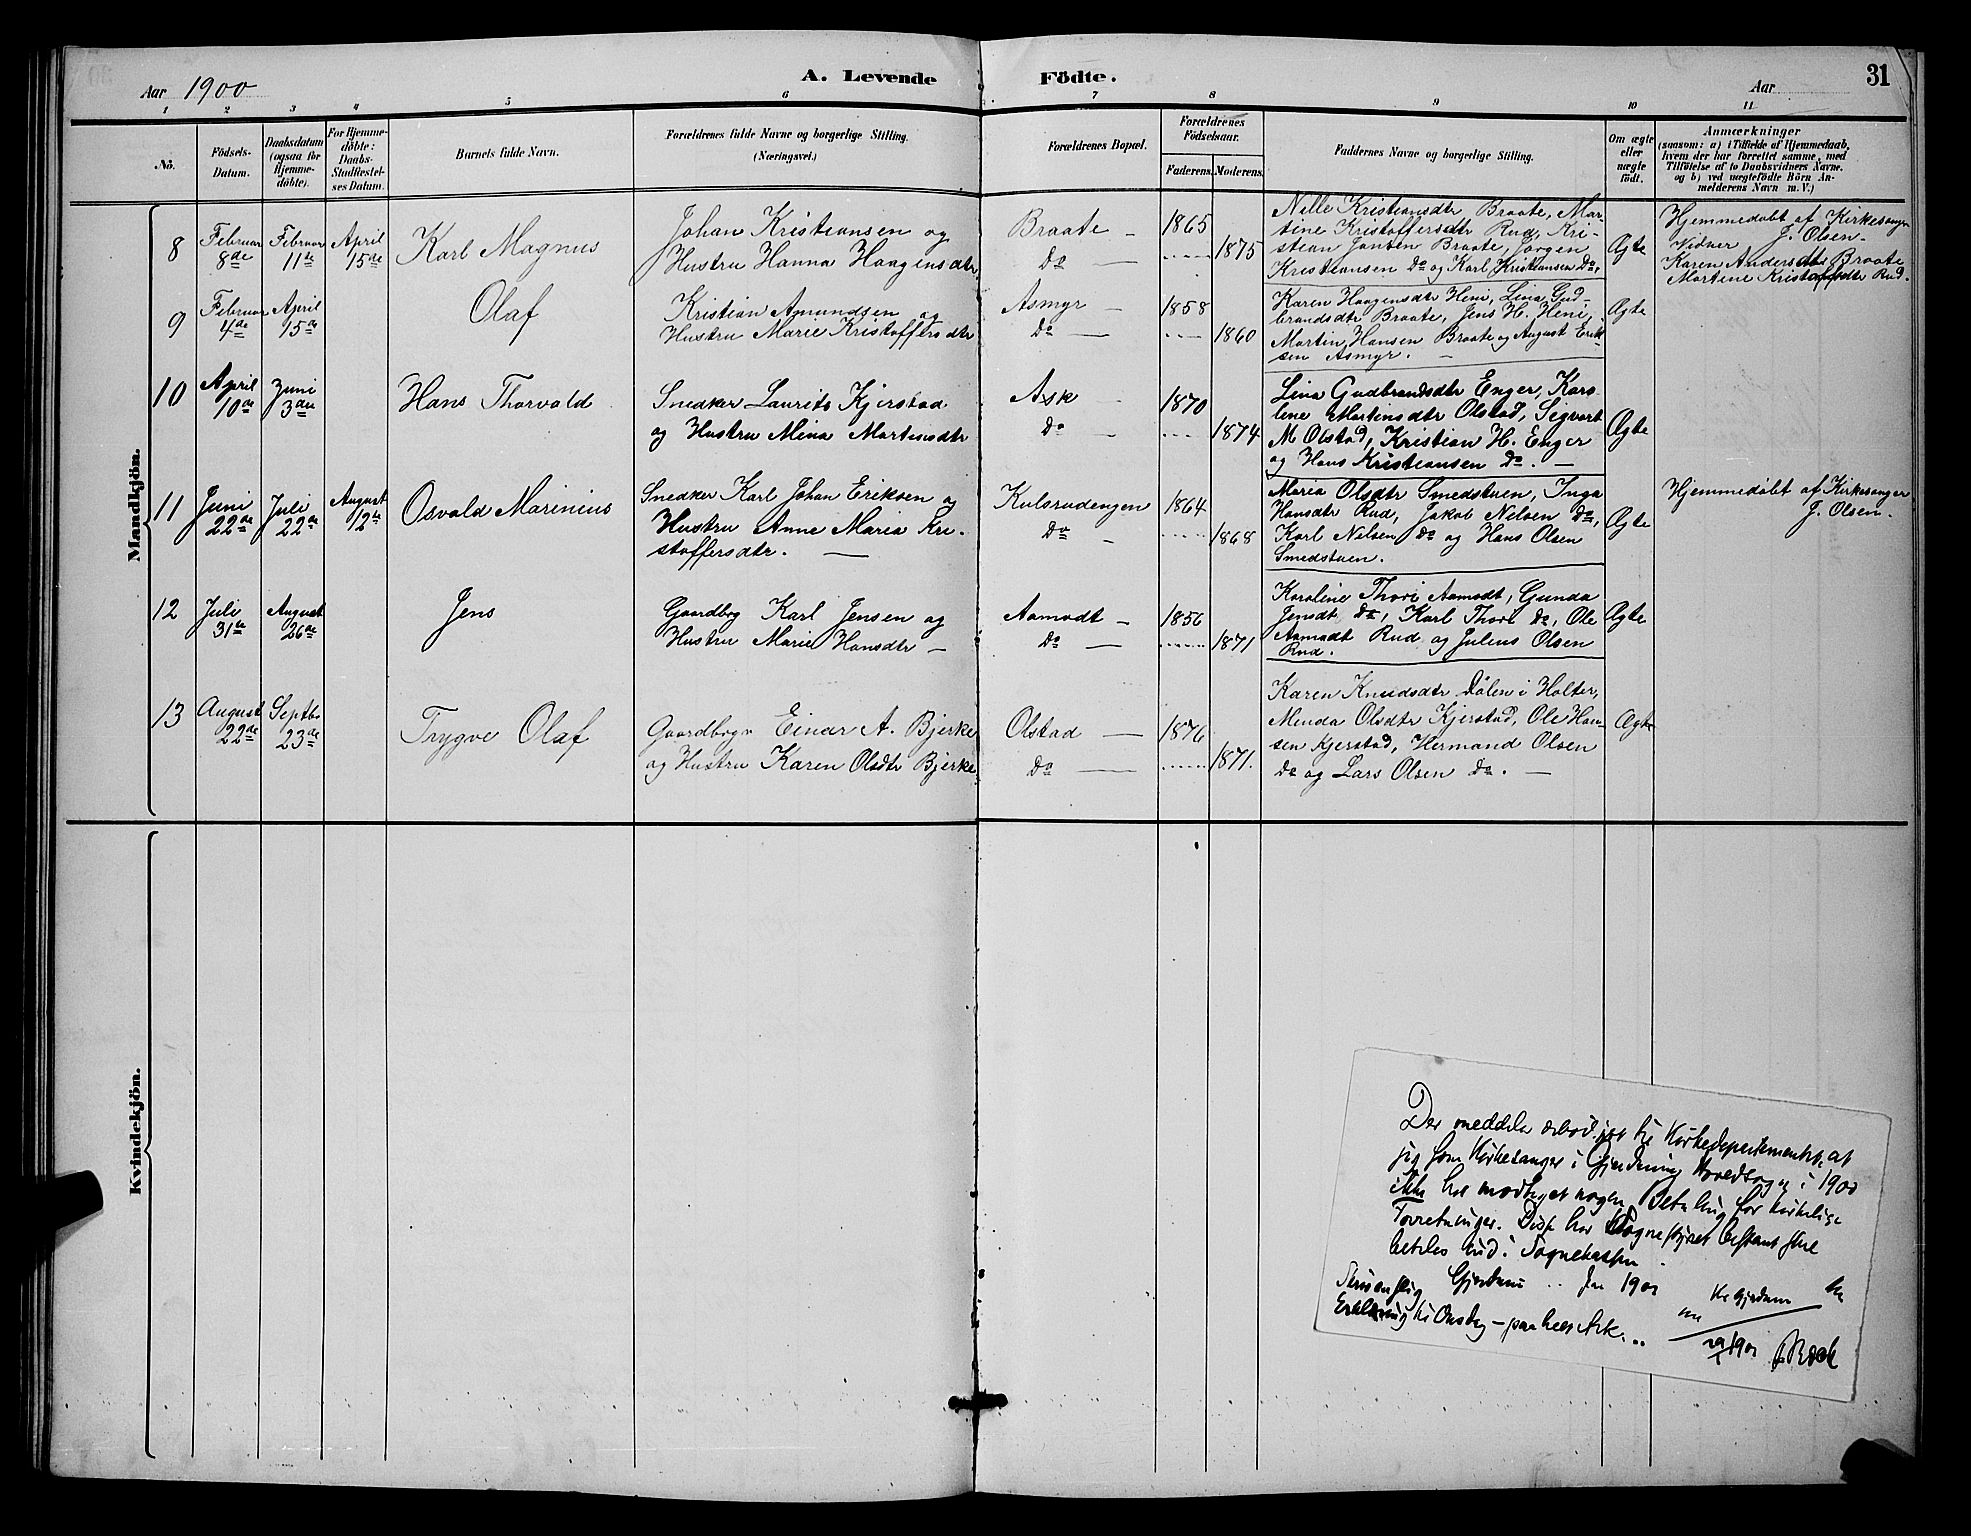 Aar 1900
A. Levende Födte.
Aar
31
1 2 3 4 5 6 7 8 9 10 11
Nö.
Födsels-
Datum.
Daabsdatum
(ogsaa for
Hjemme-
döbte).
For Hjemme-
döbte:
Daabs-
Stadfæstel-
ses Datum.
Barnets fulde Navn.
Forældrenes fulde Navne og borgerlige Stilling.
(Næringsvei.)
Forældrenes Bopæl.
Forældrenes
Födselsaar.
Faderens.
Moderens.
Faddernes Navne og borgerlige Stilling.
Om ægte
eller
uægte
födt.
Anmærkninger
(saasom: a) i Tilfælde af Hjemmedaab,
hvem der har forrettet samme, med
Tilföielse af to Daabsvidners Navne.
og b) ved uægtefödte Börn An-
melderens Navn m. V.)
Mandkjön.
8
Februar
8de
Februar
11te
April
15de
Karl Magnus
Johan Kristiansen og
Hustru Hanna Haagensdtr
Braate –
Do —
1865
1875
Nille Kristiansdtr Braate, Mar-
tine Kristoffersdtr Rud, Kri-
stian Jansen Braate, Jörgen
Kristiansen Do og Karl Kristiansen Do.
Ægte
Hjemmedöbt af Kirkesanger
J. Olsen –
Vidner
Karen Andersdtr Braate
Martine Kristoffersdtr Rud.
9
Februar
4de
April
15de
Olaf
Kristian Amundsen og
Hustru Marie Kristoffersdtr
Asmyr –
Do —
1858
1860
Karen Haagensdtr Heni, Lina Gud-
brandsdtr Braate, Jens H. Heni,
Martin Hansen Braate og August Erik-
sen Asmyr. –
Ægte
10
April
10de
Juni
3die
Hans Thorvald
Snedker Laurits Kjerstad
og Hustru Mina Martinsdtr
Ask –
Do —
1870
1874
Lina Gudbrandsdtr Enger, Karo-
line Martinsdtr Olstad, Segvart
M Olstad, Kristian H. Enger
og Hans Kristiansen Do. –
Ægte
11
Juni
22de
Juli
22de
August
12te
Osvald Marinius
Snedker Karl Johan Eriksen og
Hustru Anne Maria Kri-
stoffersdtr. —
Kulsrudengen
Do –
1864
1868
Maria Olsdtr Smedstuen, Inga
Hansdtr Rud, Jakob Nilsen Do,
Karl Nilsen Do og Hans Olsen
Smedstuen.
Ægte
Hjemmedöbt af Kirkesanger
J. Olsen –
12
Juli
31te
August
26de
Jens
Gaardbrg Karl Jensen og
Hustru Marie Hansdtr –
Aamodt –
Do —
1856
1871
Karoline Thori Aamodt, Gunda
Jensdt Do, Karl Thori Do, Ole
Aamodt Rud og Julius Olsen
Rud.
Ægte
13
August
22de
Septbr
23de
Trygve Olaf
Gaardbrgr Einar A. Bjerke
og Hustru Karen Olsdtr Bjerke
Olstad —
Do —
1876
1871.
Karen Knudsdtr Dölen i Holter,
Menda Olsdtr Kjerstad, Ole Han-
sen Kjerstad, Hermand Olsen
Do og Lars Olsen Do. —
Ægte
Kvindekjön.
Der meddeles ærbödigst til Kirkedepartementet, at
jeg som Kirkesanger i Gjerdrum Hovedsogn i 1900
ikke har modtaget nogen Betaling for kirkelige
Forretninger. Disse har Sognestyret bestemt skal
betales ind i Sognekassen
Gjerdrum .. Jan 1901
Erklæring til
29/1 1901